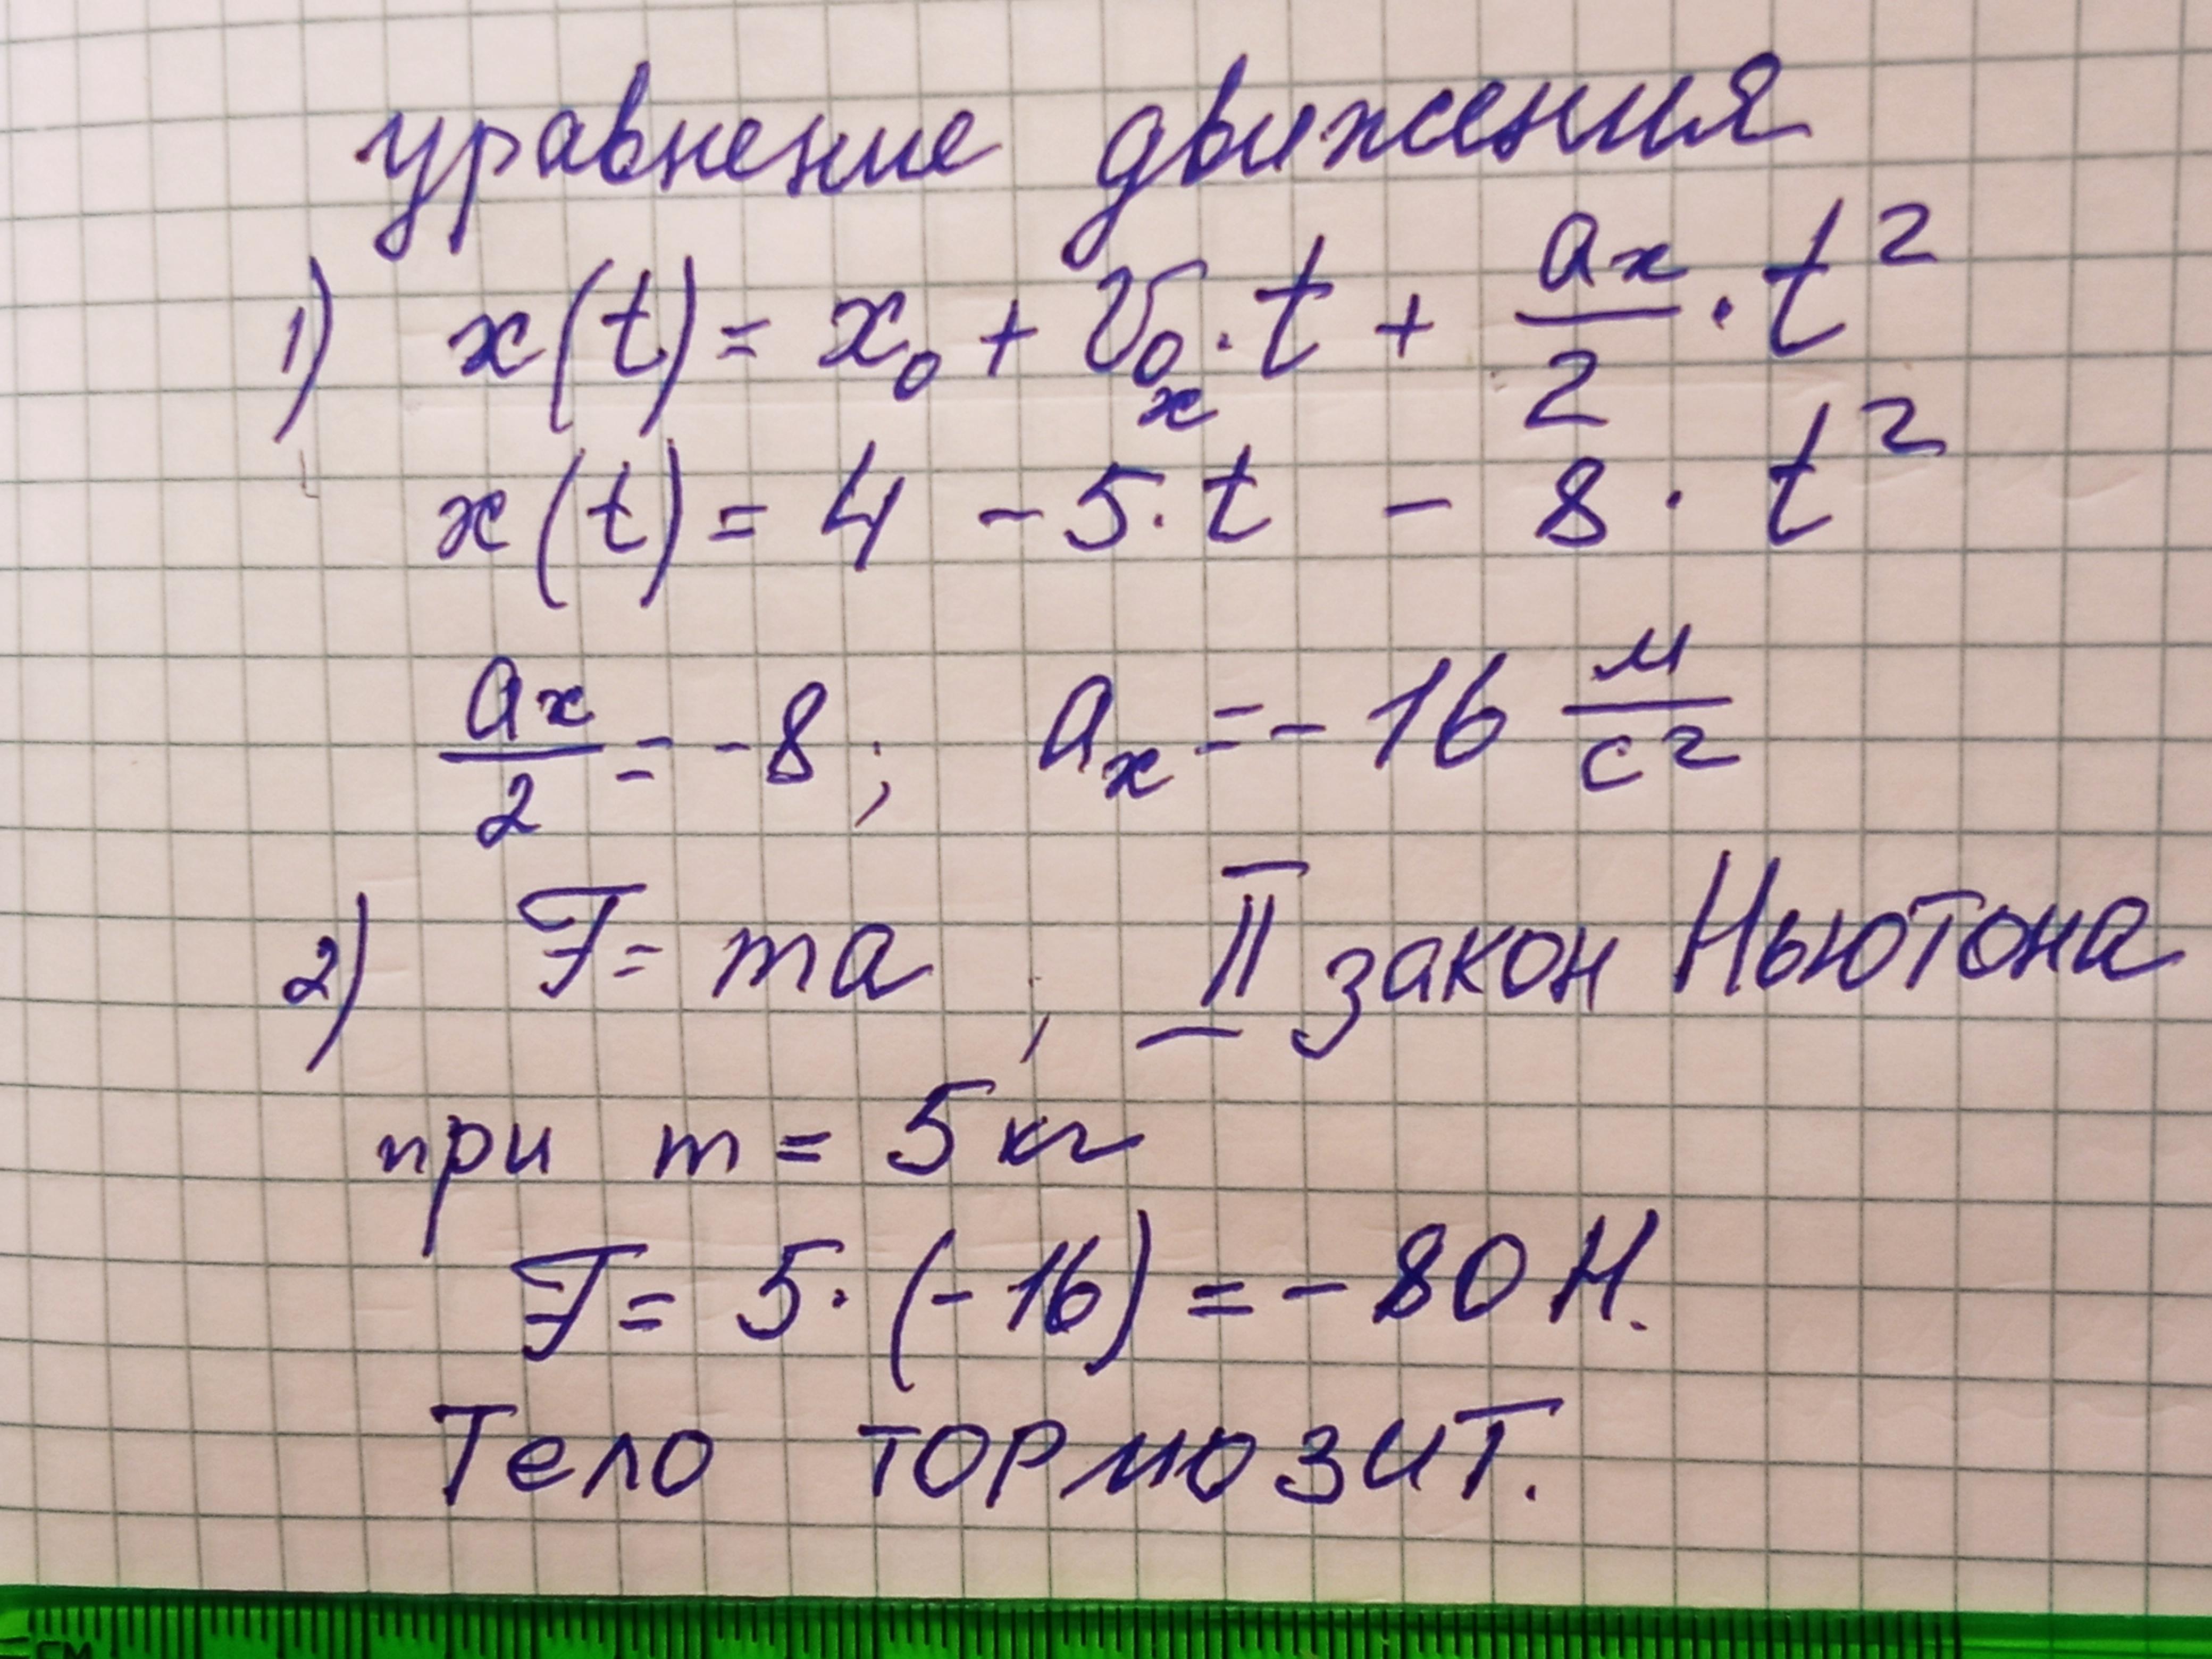 уравнение движения
1) x(t) = x₀ + V₀ₓ · t + aₓ/2 · t²
x(t) = 4 - 5 · t - 8 · t²
aₓ/2 = -8 ; aₓ = -16 м/с²
2) F = ma ; II закон Ньютона
при m = 5 кг
F = 5 · (-16) = -80 Н.
Тело тормозит.
см